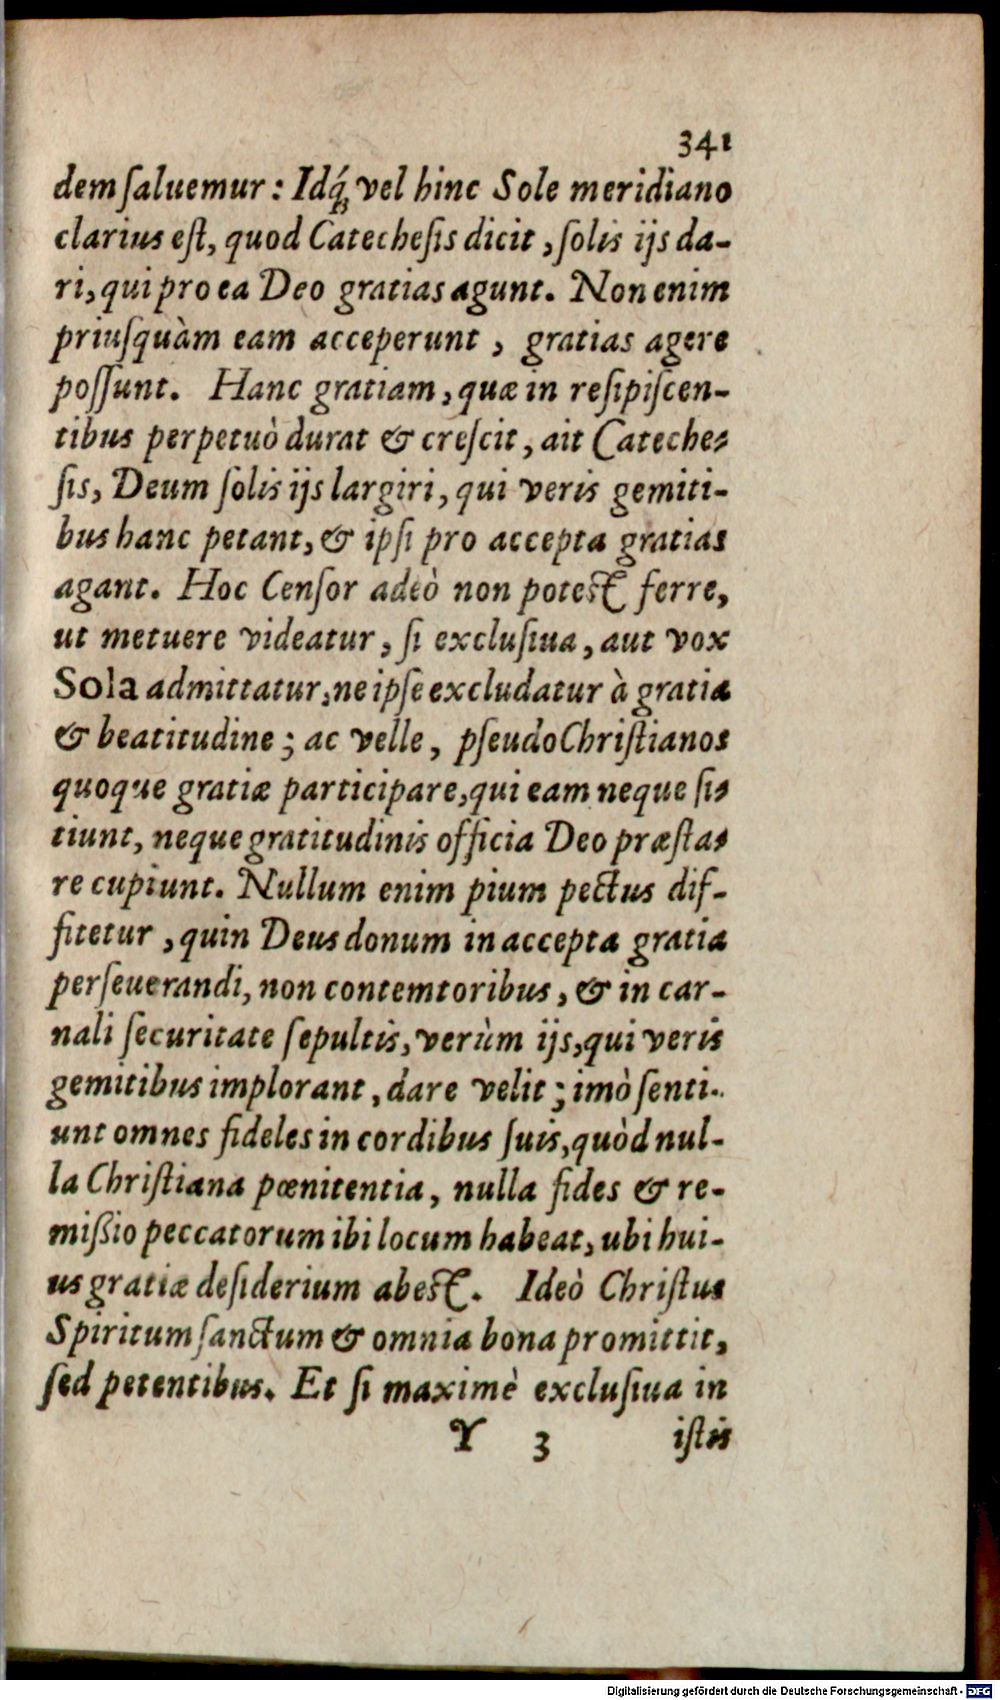 341
dem ſaluemur: Idq́; vel hinc Sole meridiano
clarius eſt, quod Catecheſis dicit, ſolis ijs da-
ri, qui pro ea Deo gratias agunt. Non enim
priuſquàm eam acceperunt, gratias agere
poſſunt. Hanc gratiam, quæ in reſipiſcen-
tibus perpetuò durat & creſcit, ait Cateche-
ſis, Deum ſolis ijs largiri, qui veris gemiti-
bus hanc petant, & ipſi pro accepta gratias
agant. Hoc Cenſor adeò non poteſt ferre,
ut metuere videatur, ſi excluſiua, aut vox
Sola admittatur, ne ipſe excludatur à gratia
& beatitudine; ac velle, pſeudoChriſtianos
quoque gratiæ participare, qui eam neque ſi-
tiunt, neque gratitudinis officia Deo præſta-
re cupiunt. Nullum enim pium pectus dif-
fitetur, quin Deus donum in accepta gratia
perſeuerandi, non contemtoribus, & in car-
nali ſecuritate ſepultis, verùm ijs, qui veris
gemitibus implorant, dare velit; imò ſenti-
unt omnes fideles in cordibus ſuis, quòd nul-
la Chriſtiana pœnitentia, nulla fides & re-
miſſio peccatorum ibi locum habeat, ubi hui-
us gratiæ deſiderium abeſt. Ideò Chriſtus
Spiritum ſanctum & omnia bona promittit,
ſed petentibus. Et ſi maximè excluſiua in
Y 3 iſtis
Digitalisierung gefördert durch die Deutsche Forschungsgemeinschaft - DFG